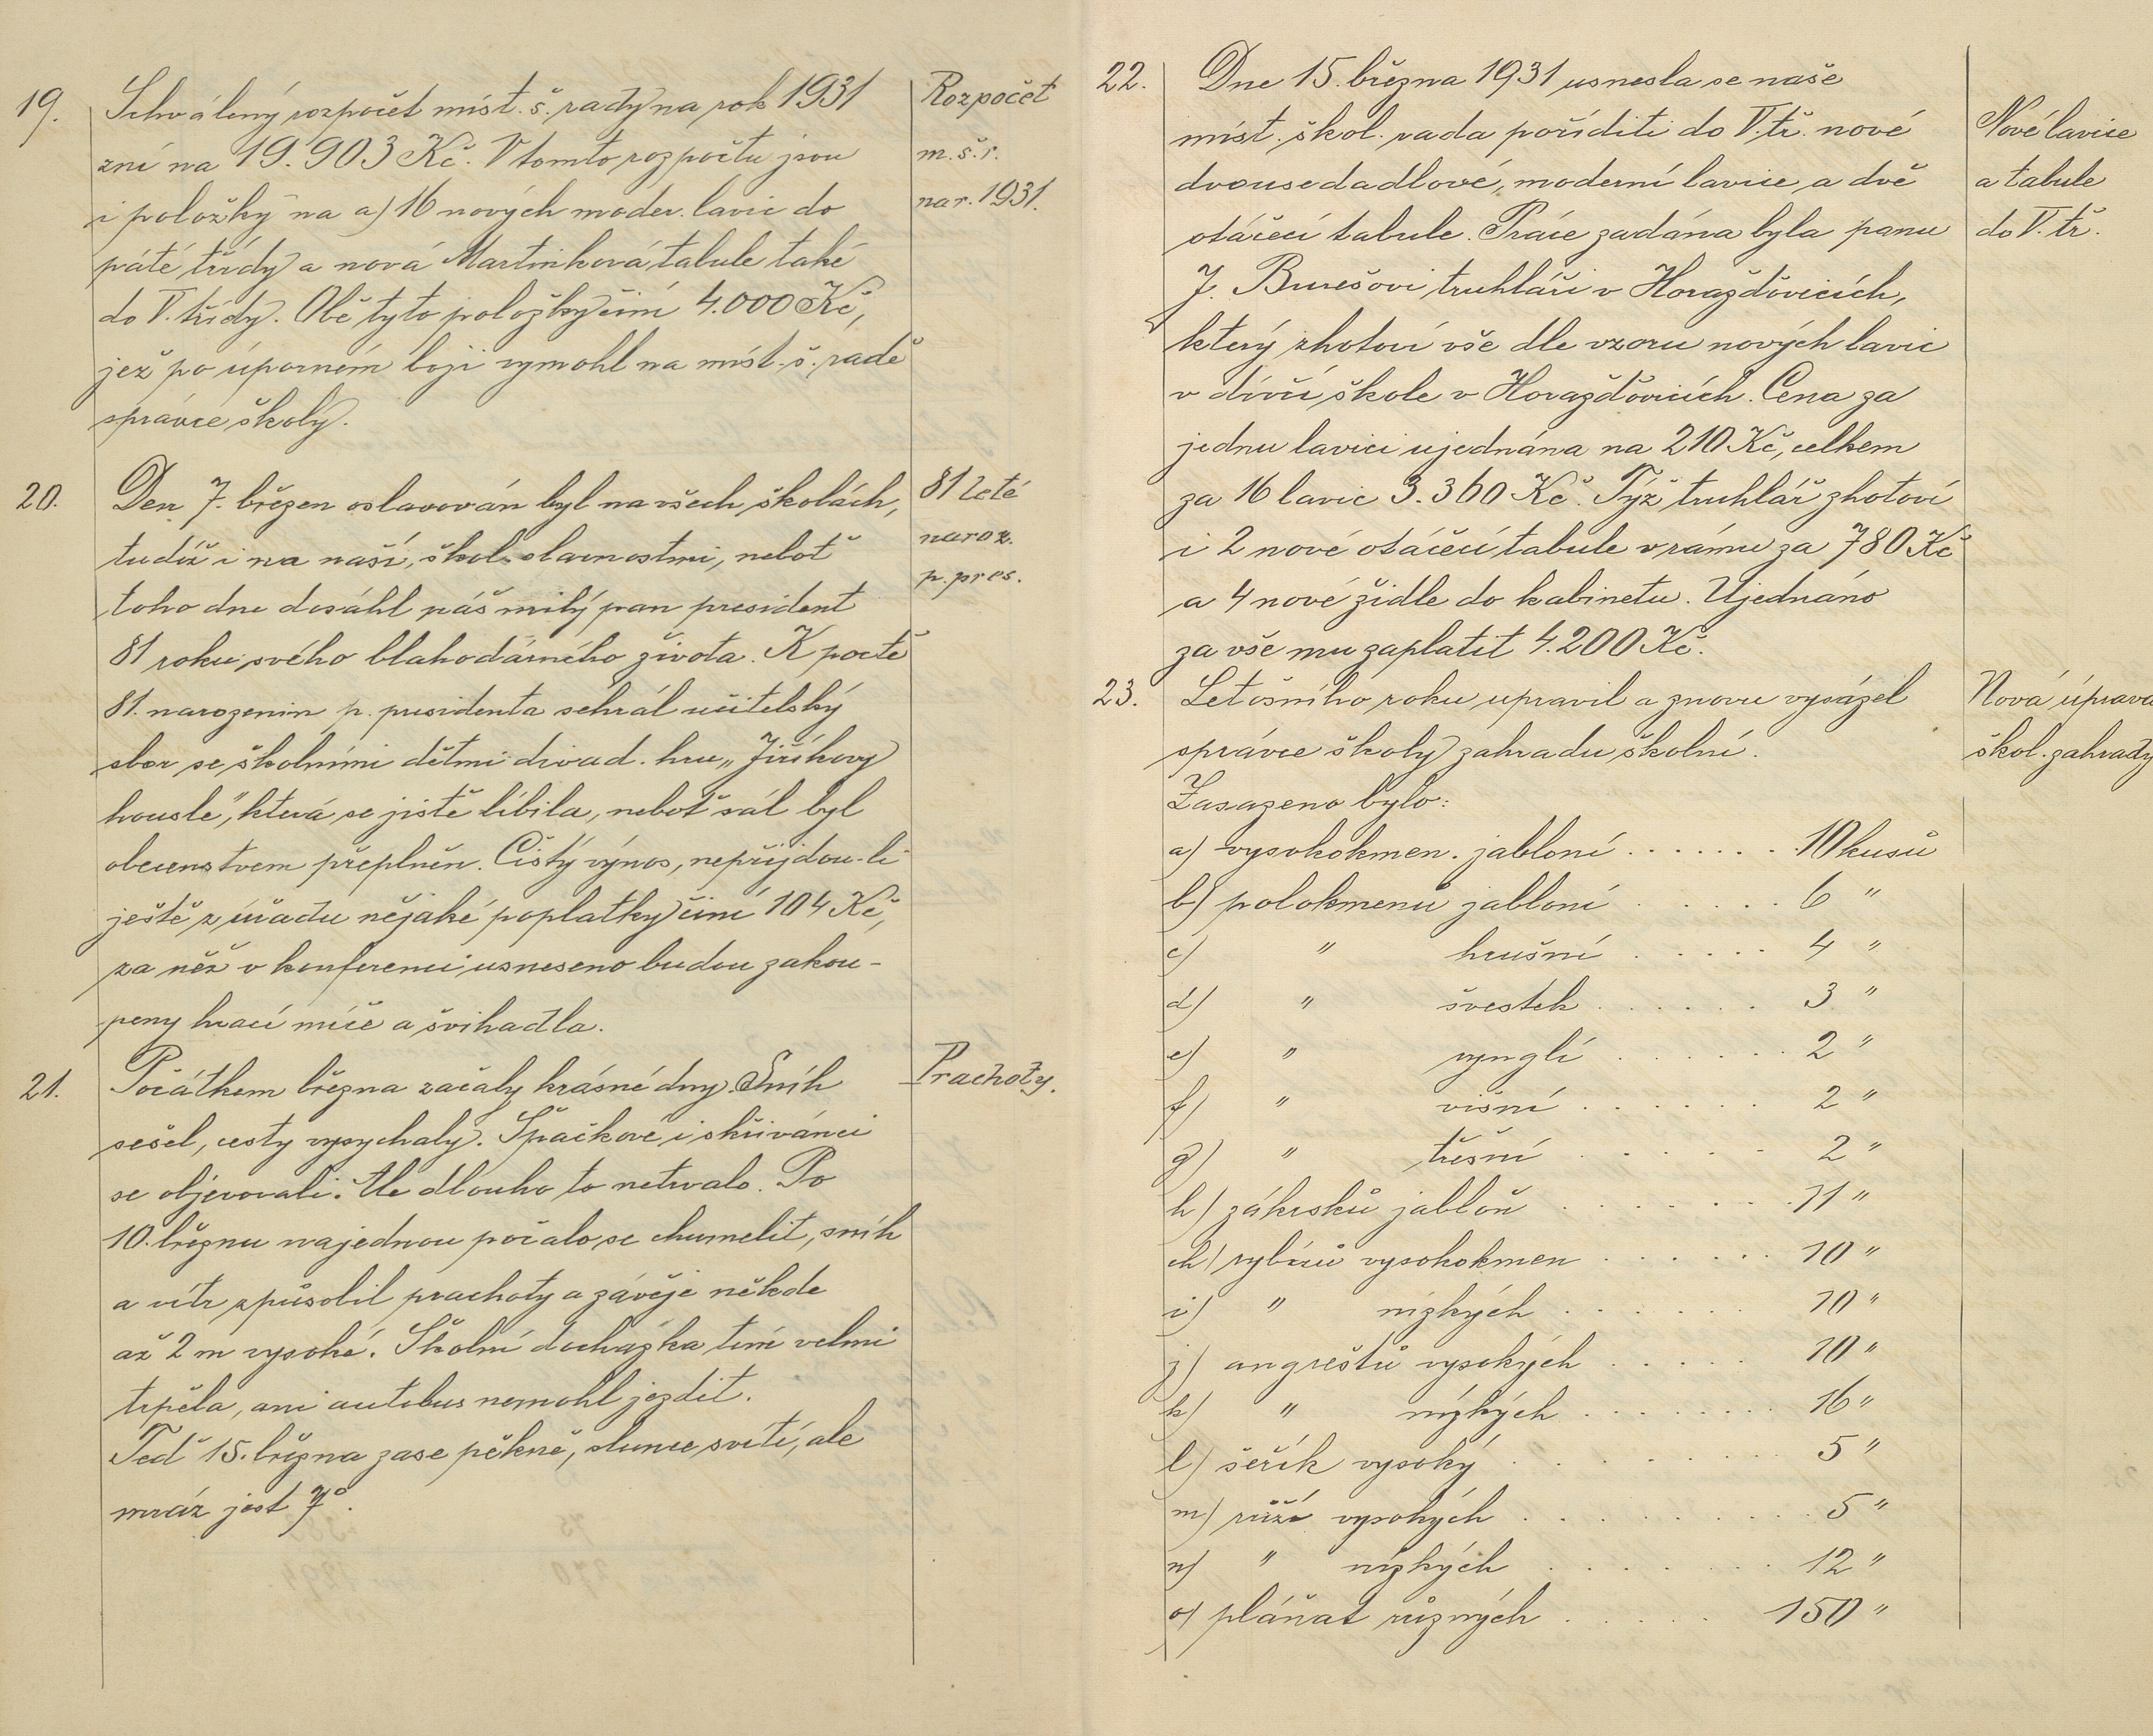 19.
Schválený rozpočet míst. š. rady na rok 1931
zní na 19.903 Kč. V tomto rozpočtu jsou
i položky na a) 16 nových moder. lavic do
páté třídy a nová Martinková tabule také
do V. třídy. Obě tyto položky činí 4.000 Kč,
jež po úporném boji vymohl na míst. š. radě
správce školy.
Rozpočet
m. š. r.
na r. 1931.
20.
Den 7. březen oslavován byl na všech školách,
tudíž i na naší, škol. slavnostmi, neboť
toho dne dosáhl náš milý pan president
81 roku svého blahodárného života. K poctě
81. narozenin p. presidenta sehrál učitelský
sbor se školními dětmi divad. hru „Jiříkovy
housle", která se jistě líbila, neboť sál byl
obecenstvem přeplněn. Čistý výnos, nepřijdou-li
ještě z úřadu nějaké poplatky činí 104 Kč,
za něž v konferenci usneseno budou zakou-
peny hrací míče a švihadla.
81 leté
naroz.
p. pres.
21.
Počátkem března začaly krásné dny. Sníh
sešel, cesty vysychaly. Špačkové i skřivánci
se objevovali. Ale dlouho to netrvalo. Po
10. březnu najednou počalo se chumelit, sníh
a vítr způsobil prachoty a závěje někde
až 2 m vysoké. Školní docházka tím velmi
trpěla, ani autobus nemohl jezdit.
Teď 15. března zase pěkně, slunce svítí, ale
mráz jest 7°.
Prachoty.
22.
Dne 15. března 1931 usnesla se naše
míst. škol. rada poříditi do V. tř. nové
dvousedadlové, moderní lavice a dvě
otáčecí tabule. Práce zadána byla panu
J. Burešovi truhláři v Horažďovicích,
který zhotoví vše dle vzoru nových lavic
v dívčí škole v Horažďovicích. Cena za
jednu lavici ujednána na 210 Kč, celkem
za 16 lavic 3.360 Kč. Týž truhlář zhotoví
i 2 nové otáčecí tabule v rámu za 780 Kč
a 4 nové židle do kabinetu. Ujednáno
za vše mu zaplatit 4.200 Kč.
Nové lavice
a tabule
do V. tř.
23.
Letošního roku upravil a znovu vysázel
správce školy zahradu školní.
Zasazeno bylo:
a) vysokokmen. jabloní . . . . . . . 10 kusů
b) polokmenů jabloní . . . . . 6 "
c) " hrušní . . . . . 4 "
d) " švestek . . . . . . 3 "
e) " rynglí . . . . . . . 2 "
f) " višní . . . . . . 2 "
g) " třešní . . . . . . 2 "
h) zákrsků jabloň . . . . . . . 11 "
ch) rybízů vysokokmen . . . . . . . 10 "
i) " nízkých . . . . . . 10 "
j) angreštů vysokých . . . . . 10 "
k) " nízkých . . . . . . . . 16 "
l) šeřík vysoký . . . . . . . . . 5 "
m) růží vysokých . . . . . . . . . . 5 "
n) " nízkých . . . . . . . 12 "
o) pláňat různých . . . . . 150 "
Nová úprava
škol. zahrady